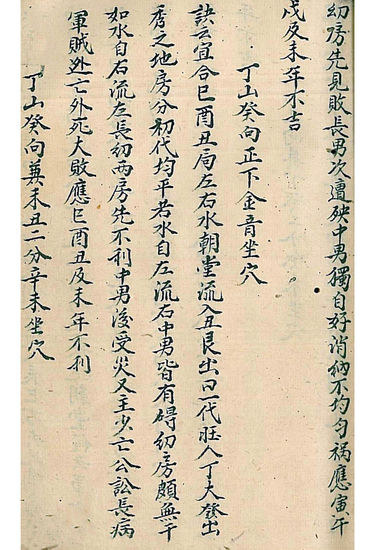 幼房先見敗長男次遭殃中男獨自好消納不均勻禍應寅午
戌及未年不吉
丁山癸向正下金音坐穴
訣云宜合巳酉丑局左右水朝堂流入丑艮出口一代旺人丁大發出
秀之地房分初代均平若水自左流右中男皆有碍幼房頗無干
如水自右流左長幼兩房先不利中男後受災又主少亡公訟長病
軍賊外亡外死大敗應巳酉丑及未年不利
丁山癸向兼未丑二分辛未坐穴